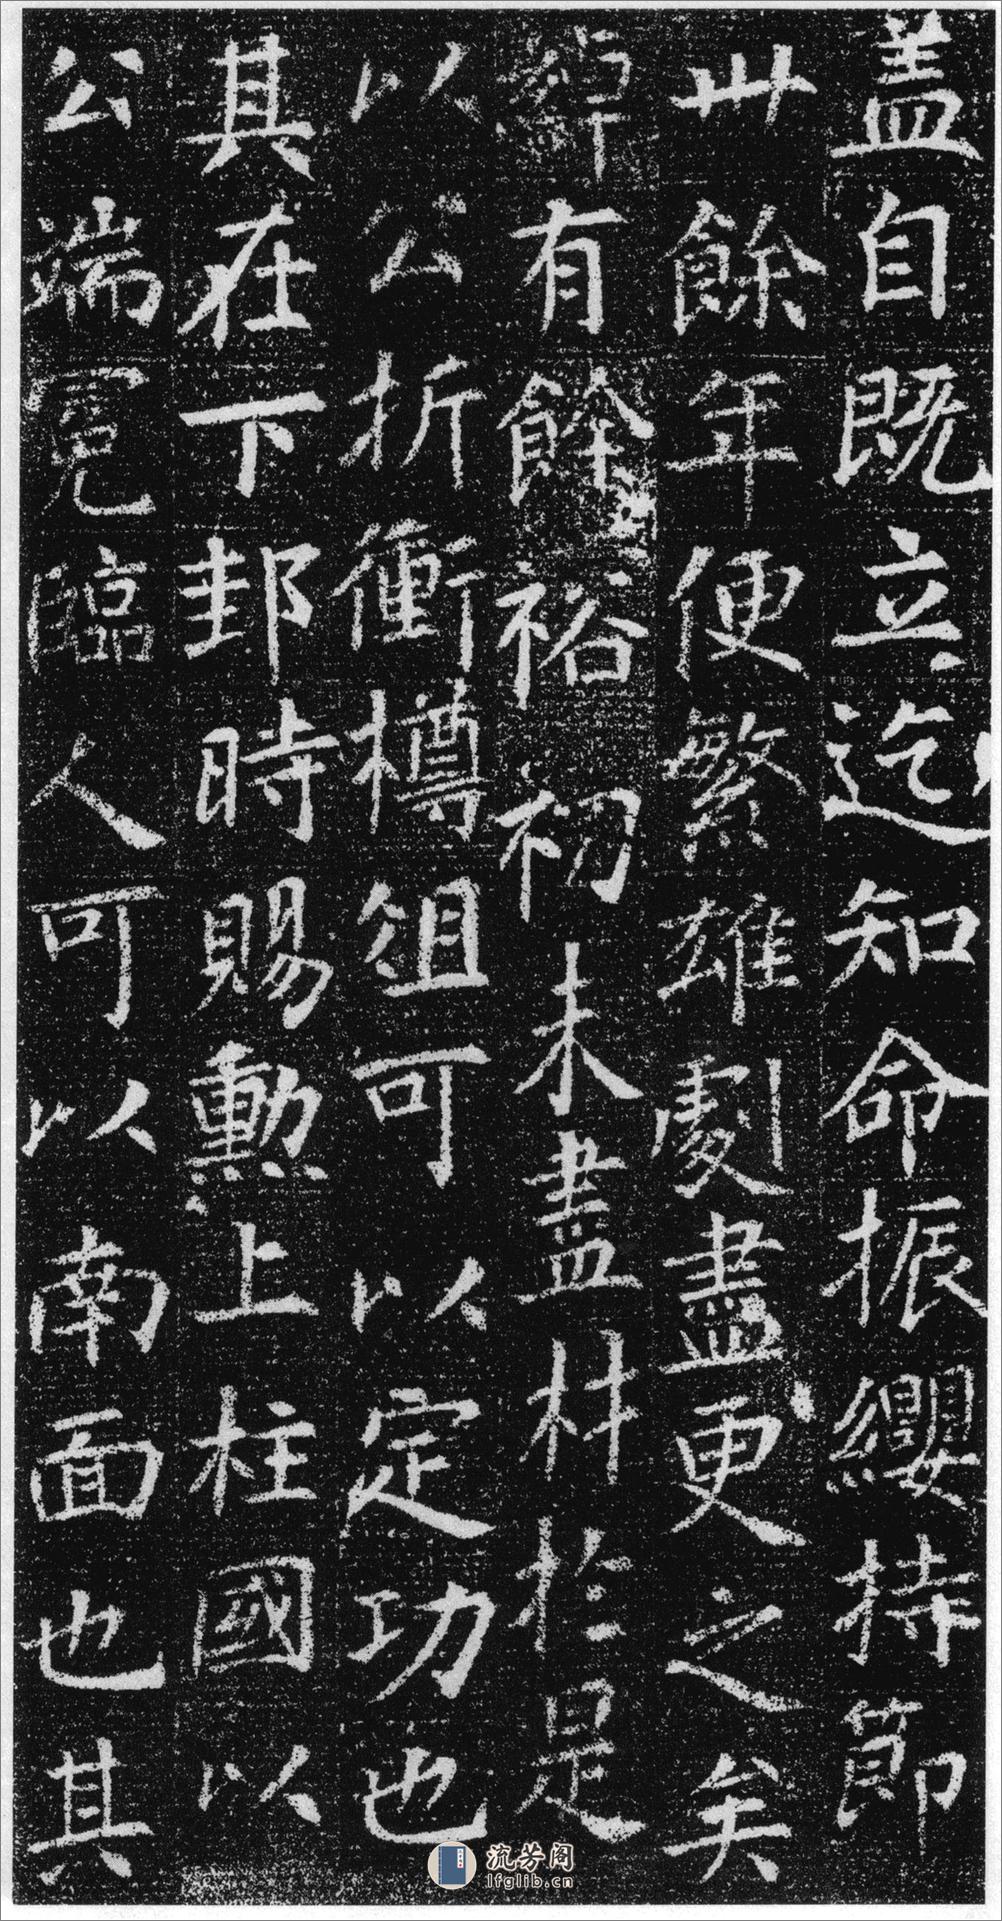 盖自既立迄知命振纓持節
卅餘年便繁雄劇盡更之矣
綽有餘裕初未盡材於是
以公折衝樽俎可以定功也
其在下邽時賜勳上柱國以
公端寬臨人可以南面也其
流芳阁
lfglib.cn